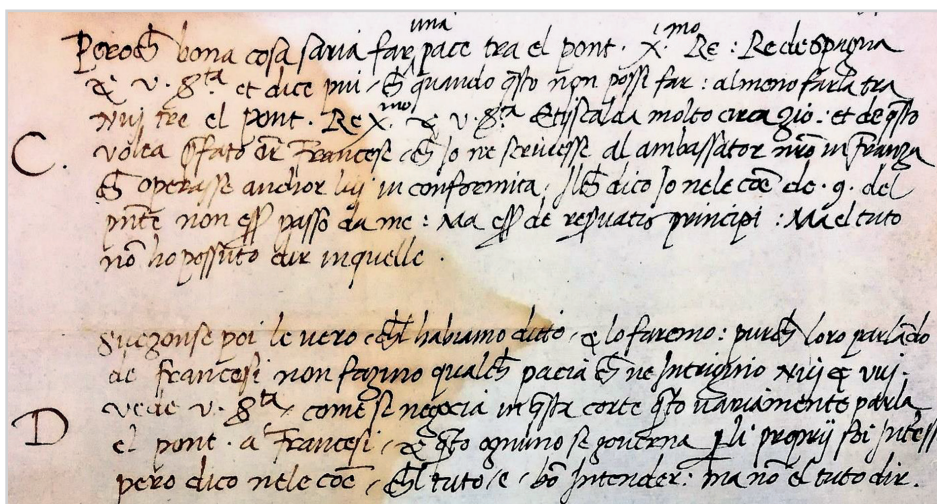 una
Peroch bona cosa saria far pace tra el pont. X.mo Re: Re de Spagna
& v. S.ta et dice pui ch quando qsto non possi far: almeno farla tra
Nuj tre el pont. Re X.mo & v. S.ta Et iscalda molto circa zio: et de qsto
C. volta pfato or Francese ch Io ne scrivesse al ambassator nro in Franza
ch operasse anchor luj in conformita. Ilch dico Io nele coe de .9. del
pnte non ess passo da me: Ma ess de principi: Ma el tuto
no ho possuto dir in quelle.
poi le vero chl habiamo dicto & lo faremo: purch loro parlado
de Francesi non fazino qualch pacia ch ne Intrigino Nuj & vuj.
D vede v. S.ta come se negocia in qsta corte qto variamente parla
el pont. a Francesi, & qto ognuno se governa p li proprij soi Intess
pero dico nele coe chl tuto e bo Intender: ma no el tuto dir.